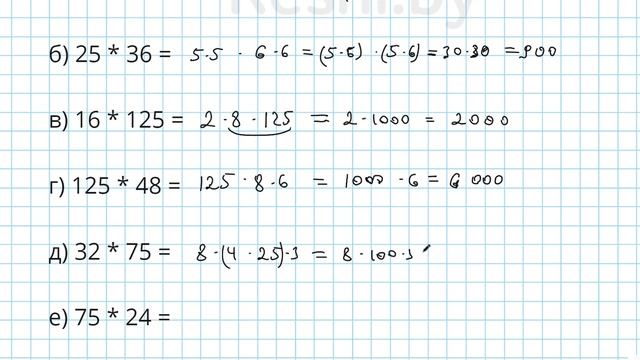 Reshi.by
б) 25 * 36 = 5·5 · 6·6 = (5·6) · (5·6) = 30·30 = 900
в) 16 * 125 = 2·8·125 = 2·1000 = 2000
г) 125 * 48 = 125·8·6 = 1000·6 = 6000
д) 32 * 75 = 8·(4·25)·3 = 8·100·3
е) 75 * 24 =